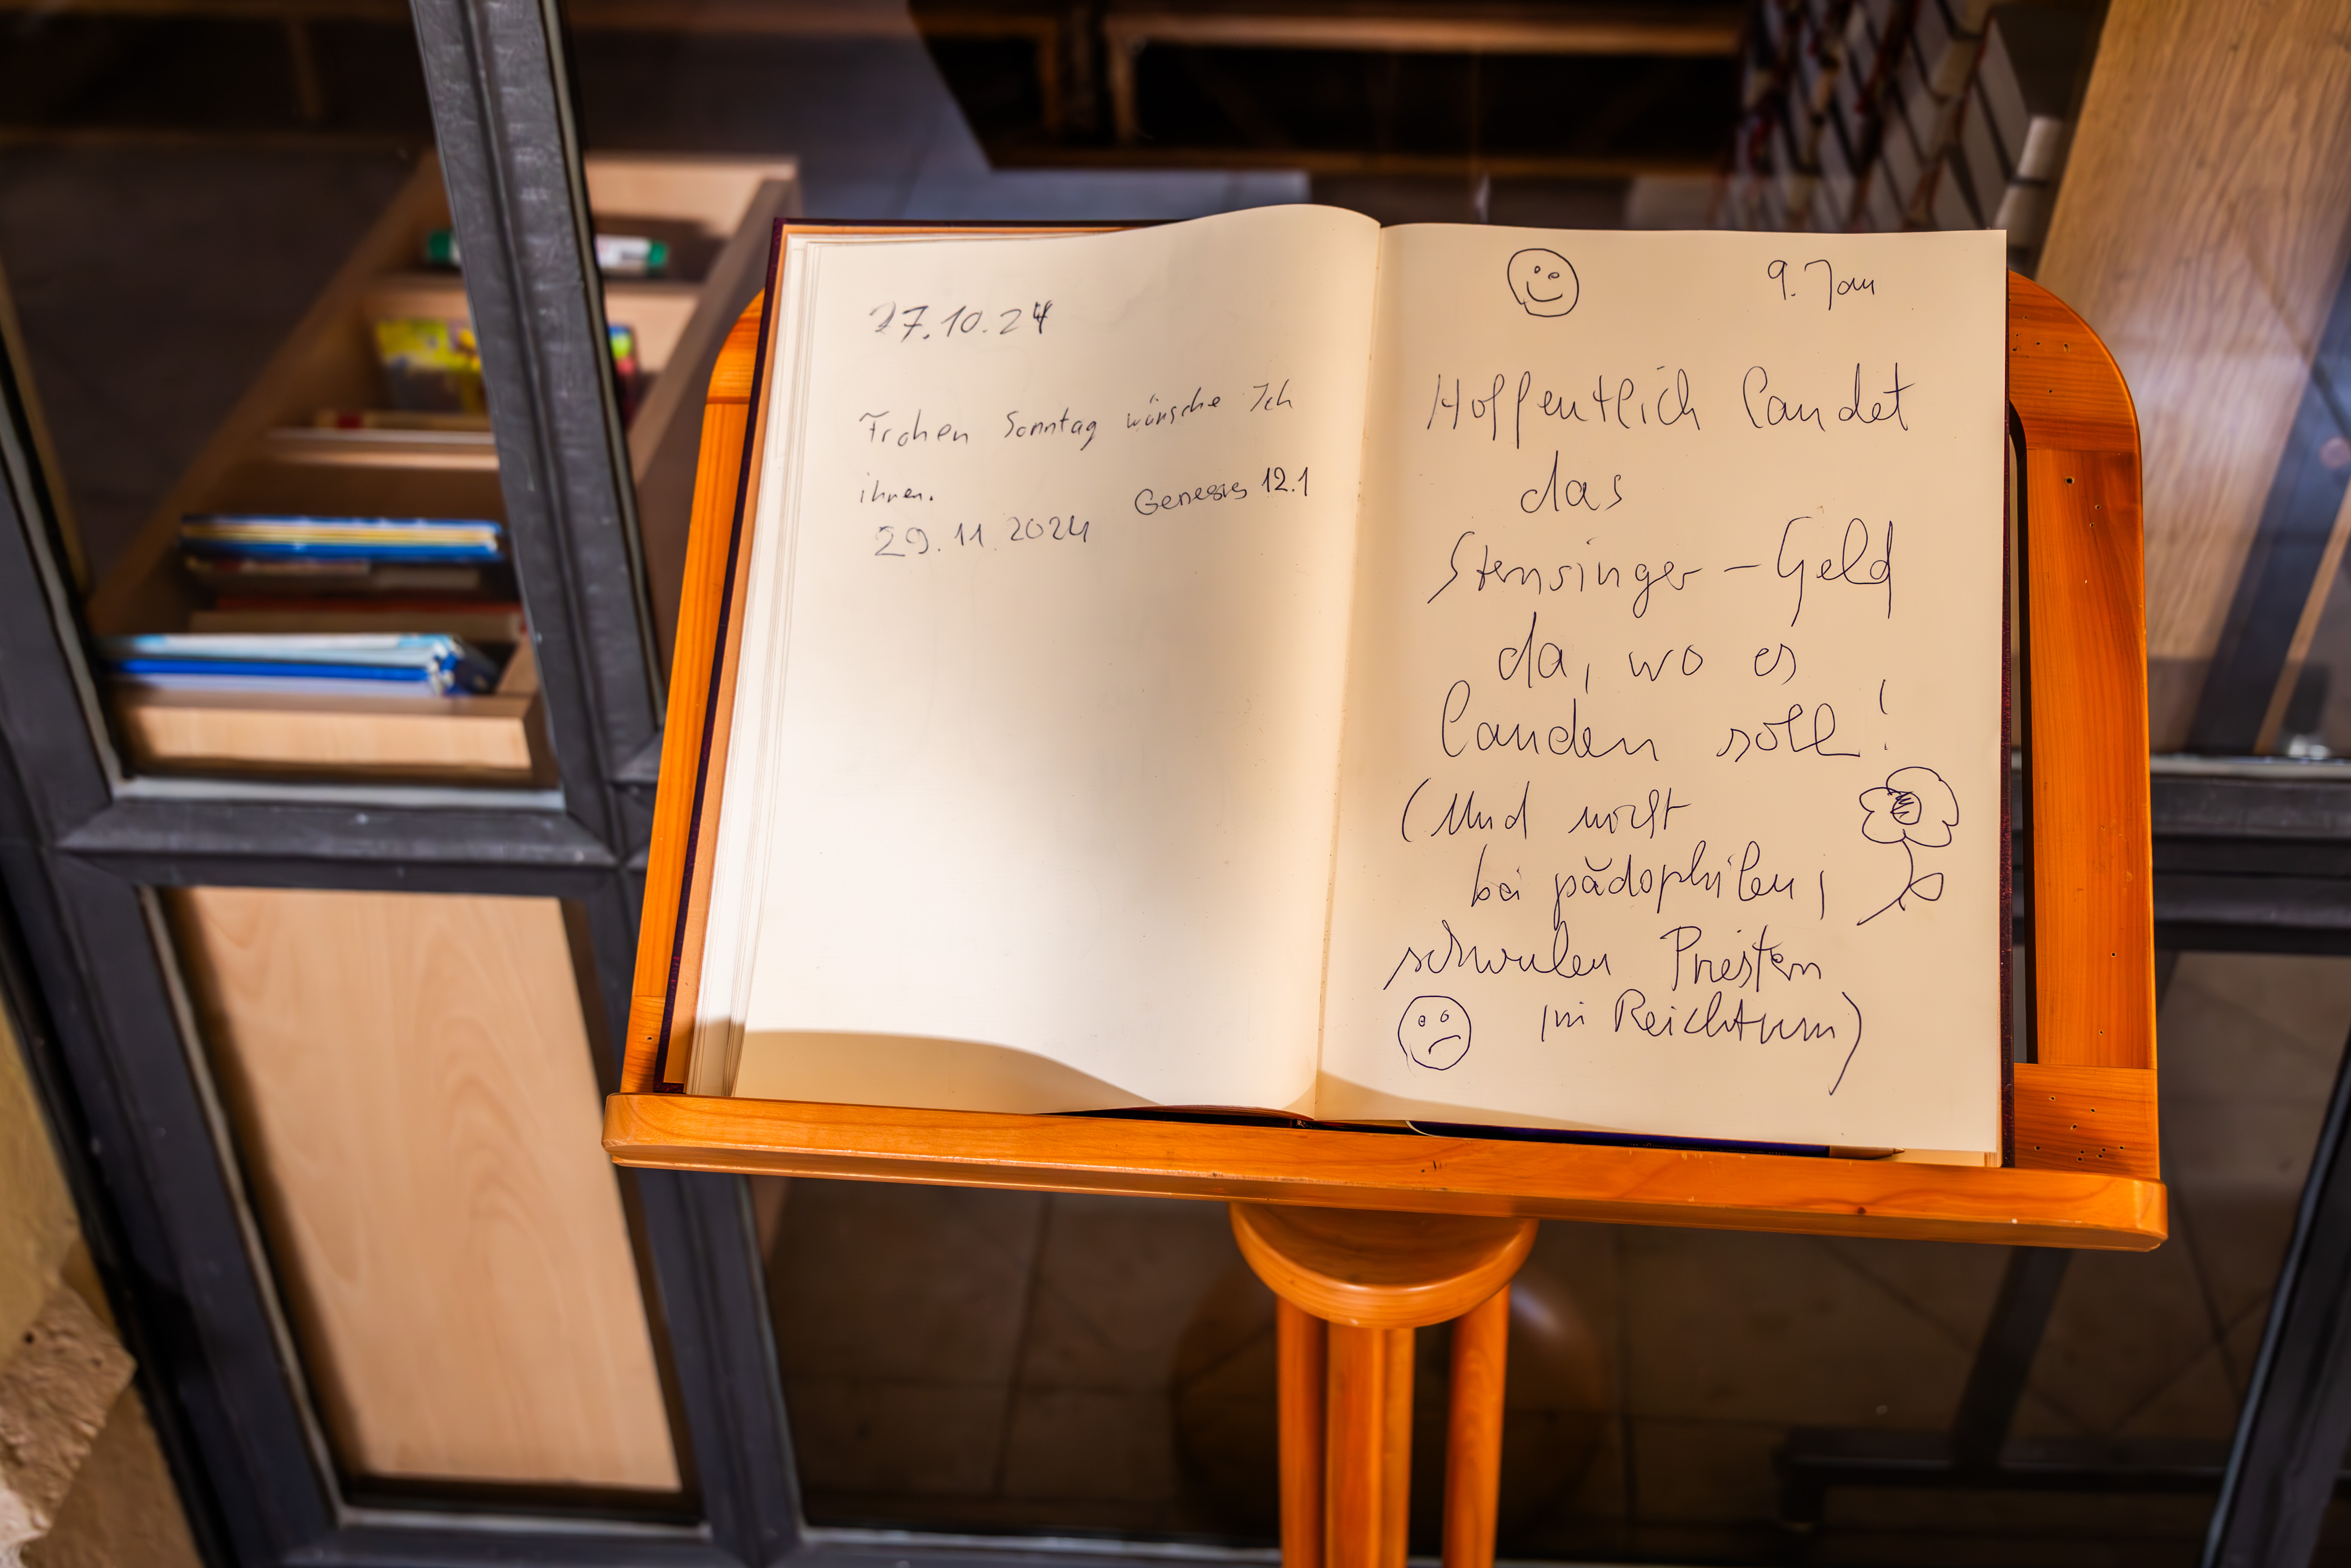 27.10.24
Frohen Sonntag wünsche Ich
ihnen.
Genesis 12.1
29.11.2024
9. Jan
Hoffentlich landet
das
Sternsinger-Geld
da, wo es
landen soll!
(Und nicht
bei pädophilen,
schwulen Priestern
im Reichtum)